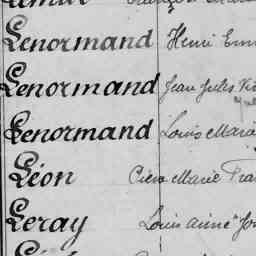 Lenormand Henri
Lenormand Jean Jules
Lenormand Louis Marie
Léon Pierre Marie
Leray Louis aimé